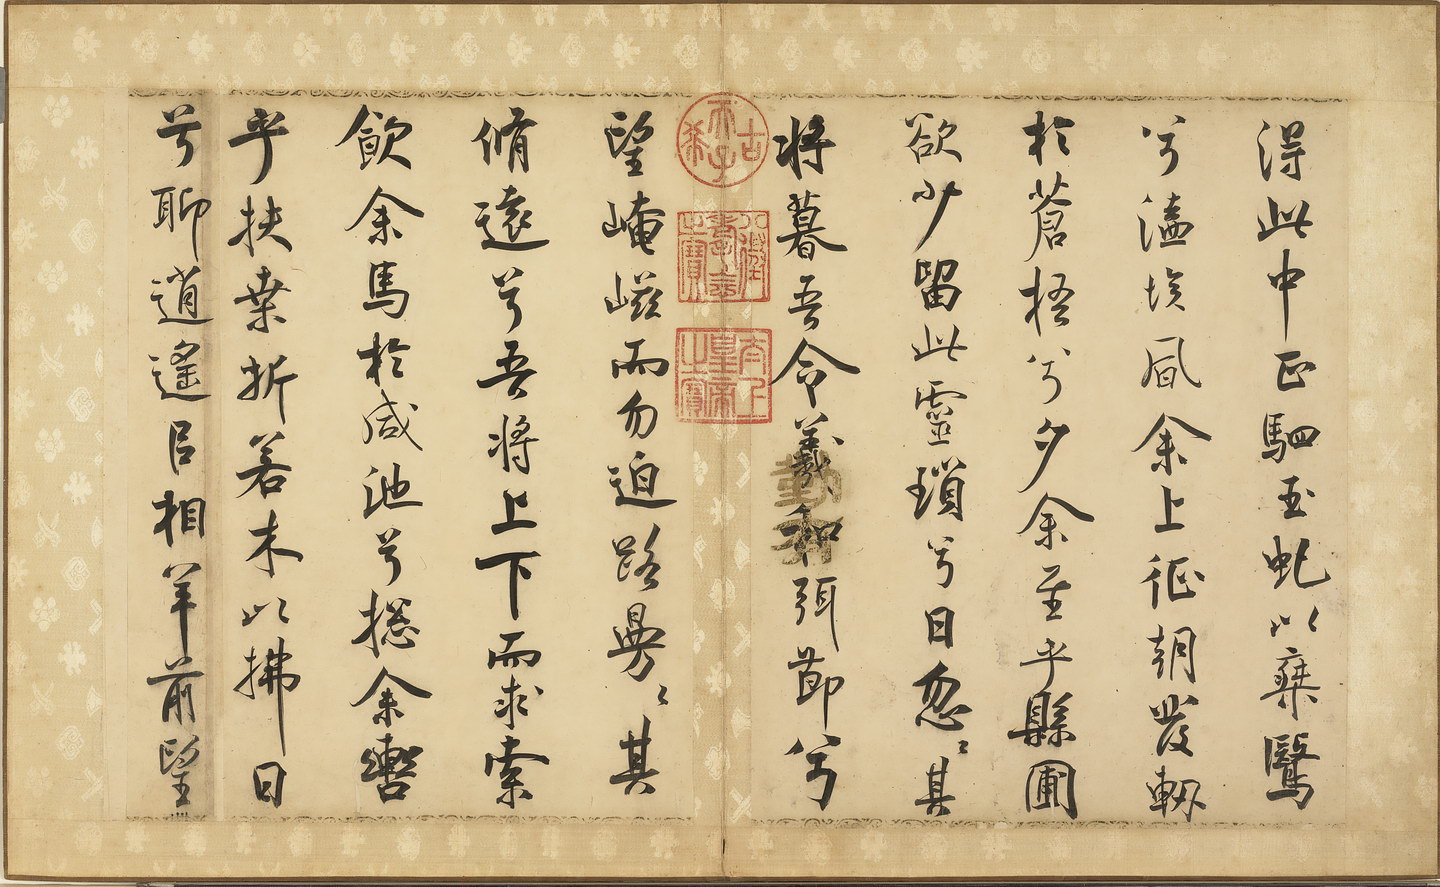 得此中正駟玉虬以椉鷖
兮溘埃風余上征朝發軔
於蒼梧兮夕余至乎縣圃
欲少留此靈瑣兮日忽〻其
將暮吾令羲和弭節兮
古希天子
八徵耄念之寶
太上皇帝之寶
望崦嵫而勿迫路曼〻其
脩遠兮吾將上下而求索
飲余馬於咸池兮揔余轡
乎扶桒折若木以拂日
兮聊逍遙㠯相羊前望